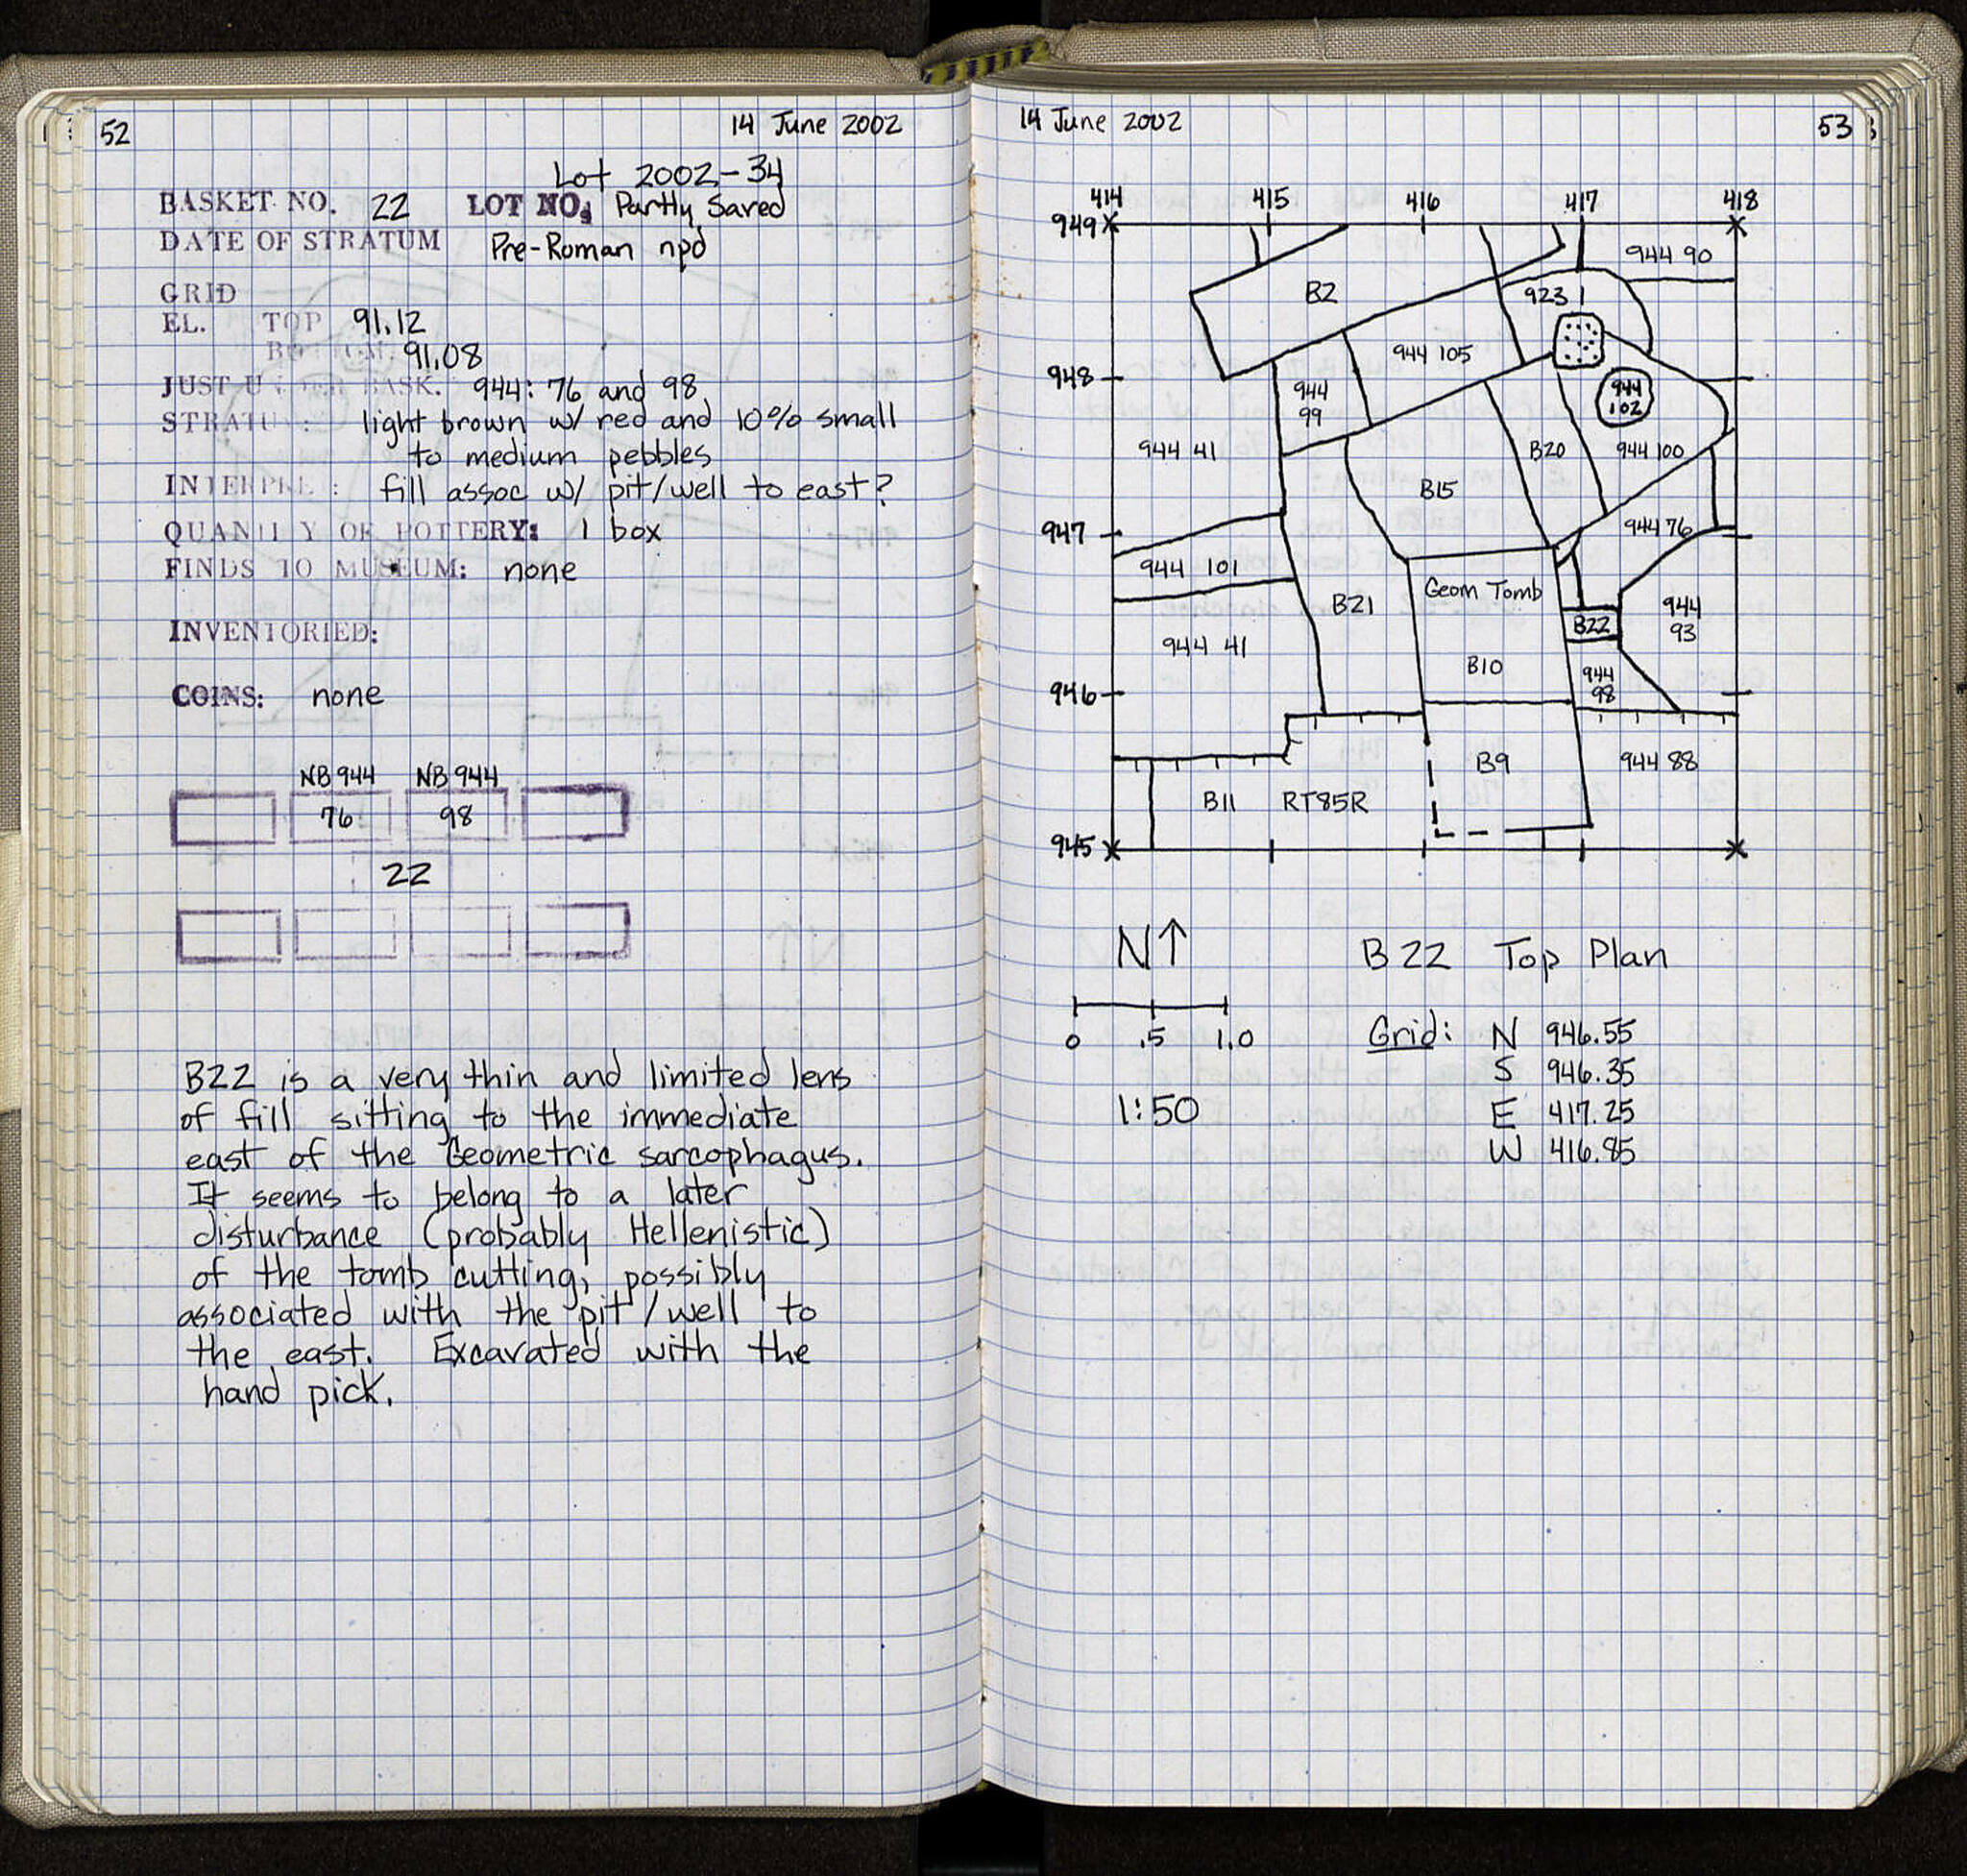 52
14 June 2002
Lot 2002-34
BASKET NO. 22 LOT NO. Partly Saved
DATE OF STRATUM Pre-Roman npd
GRID
EL. TOP 91.12
BOTTOM 91.08
JUST UNDER BASK. 944: 76 and 98
STRATUM: light brown w/ red and 10% small
to medium pebbles
INTERPRET: fill assoc w/ pit/well to east?
QUANTITY OF POTTERY: 1 box
FINDS TO MUSEUM: none
INVENTORIED:
COINS: none
NB 944 NB 944
76 98
22
B22 is a very thin and limited lens
of fill sitting to the immediate
east of the Geometric sarcophagus.
It seems to belong to a later
disturbance (probably Hellenistic)
of the tomb cutting, possibly
associated with the pit/well to
the east. Excavated with the
hand pick.
14 June 2002
53
414 415 416 417 418
949
944 90
B2
923 1
944 105
948
944
99
944
102
944 41
B20
944 100
B15
947
944 76
944 101
Geom Tomb
B21
944
93
B22
944 41
B10
944
98
946
B9
944 88
B11 RT85R
945
N↑
B22 Top Plan
0 .5 1.0
Grid: N 946.55
S 946.35
1:50
E 417.25
W 416.85